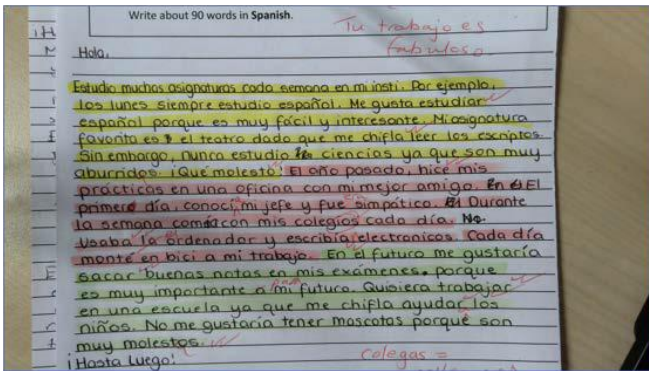 Write about 90 words in Spanish.
Tu trabajo es
fabuloso.
Hola,
Estudio muchas asignaturas cada semana en mi insti. Por ejemplo,
los lunes siempre estudio español. Me gusta estudiar
español porque es muy fácil y interesante. Mi asignatura
favorita es el teatro dado que me chifla leer los escriptos.
Sin embargo, nunca estudio ciencias ya que son muy
aburridos ¡Qué molesto! El año pasado, hice mis
prácticas en una oficina con mi mejor amigo. El
primero día, conocí mi jefe y fue simpático. Durante
la semana comía con mis colegios cada día. No
usaba la ordenador y escribía electronicos. Cada día
monté en bici a mi trabajo. En el futuro me gustaría
sacar buenas notas en mis exámenes. porque
es muy importante a mi futuro. Quisiera trabajar
para
en una escuela ya que me chifla ayudar los
niños. No me gustaría tener mascotas porque son
muy molestos.
¡Hasta Luego!
Colegas =